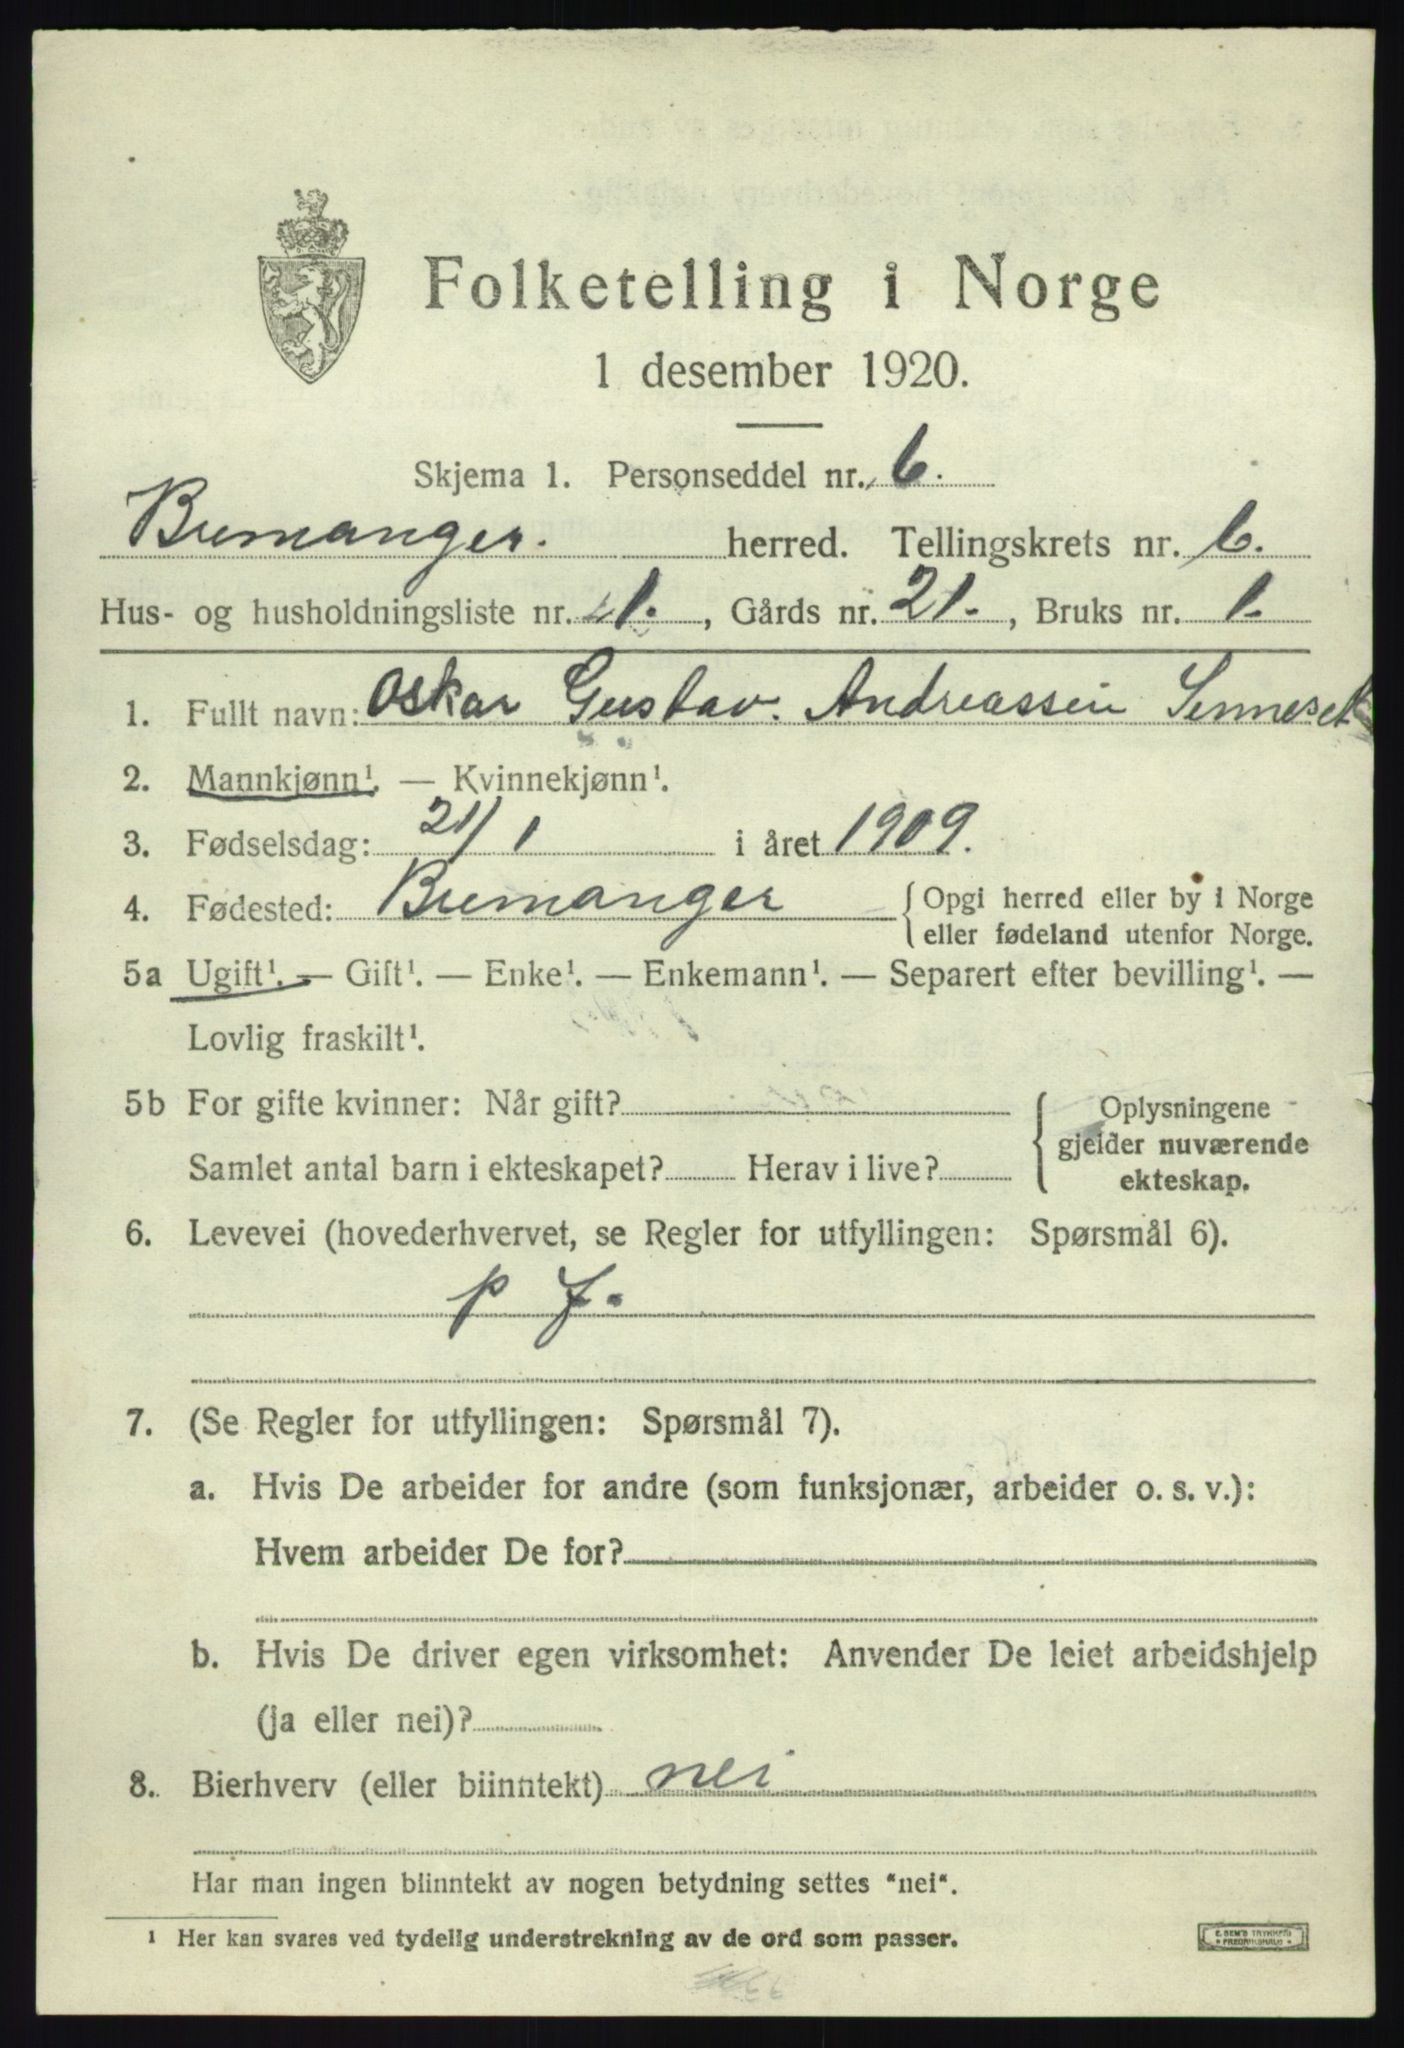 Folketelling i Norge
1 desember 1920.
Skjema 1. Personseddel nr. 6.
Bremanger. herred. Tellingskrets nr. 6.
Hus- og husholdningsliste nr. 1. , Gårds nr. 21. , Bruks nr. 1.
1. Fullt navn: Oskar Gustav. Andreassen Senneset
2. Mannkjønn¹. — Kvinnekjønn¹.
3. Fødselsdag: 21/1 i året 1909.
4. Fødested: Bremanger { Opgi herred eller by i Norge
eller fødeland utenfor Norge.
5a Ugift¹. — Gift¹. — Enke¹. — Enkemann¹. — Separert efter bevilling¹. —
Lovlig fraskilt¹.
5b For gifte kvinner: Når gift?
Samlet antal barn i ekteskapet? Herav i live?
{ Oplysningene
gjelder nuværende
ekteskap.
6. Levevei (hovederhvervet, se Regler for utfyllingen: Spørsmål 6).
p f.
7. (Se Regler for utfyllingen: Spørsmål 7).
a. Hvis De arbeider for andre (som funksjonær, arbeider o. s. v.):
Hvem arbeider De for?
b. Hvis De driver egen virksomhet: Anvender De leiet arbeidshjelp
(ja eller nei)?
8. Bierhverv (eller biinntekt) nei
Har man ingen biinntekt av nogen betydning settes "nei".
1 Her kan svares ved tydelig understrekning av de ord som passer.
E. SEM'S TRYKKERI
FREDRIKSHALD